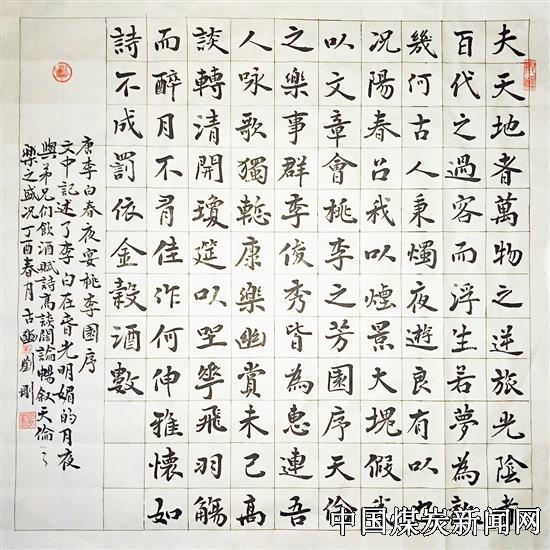 夫天地者萬物之逆旅光陰者
百代之過客而浮生若夢為歡
幾何古人秉燭夜遊良有以也
况陽春召我以煙景大塊假我
以文章會桃李之芳園序天倫
之樂事群季俊秀皆為惠連吾
人咏歌獨慙康樂幽賞未已高
談轉清開瓊筵以坐華飛羽觴
而醉月不有佳作何伸雅懷如
詩不成罰依金穀酒數
唐李白春夜宴桃李園序
文中記述了李白在春光明媚的月夜
與弟兄们飲酒賦詩高談闊論暢叙天倫之
樂之盛况丁酉春月古幽劉剛
中国煤炭新闻网